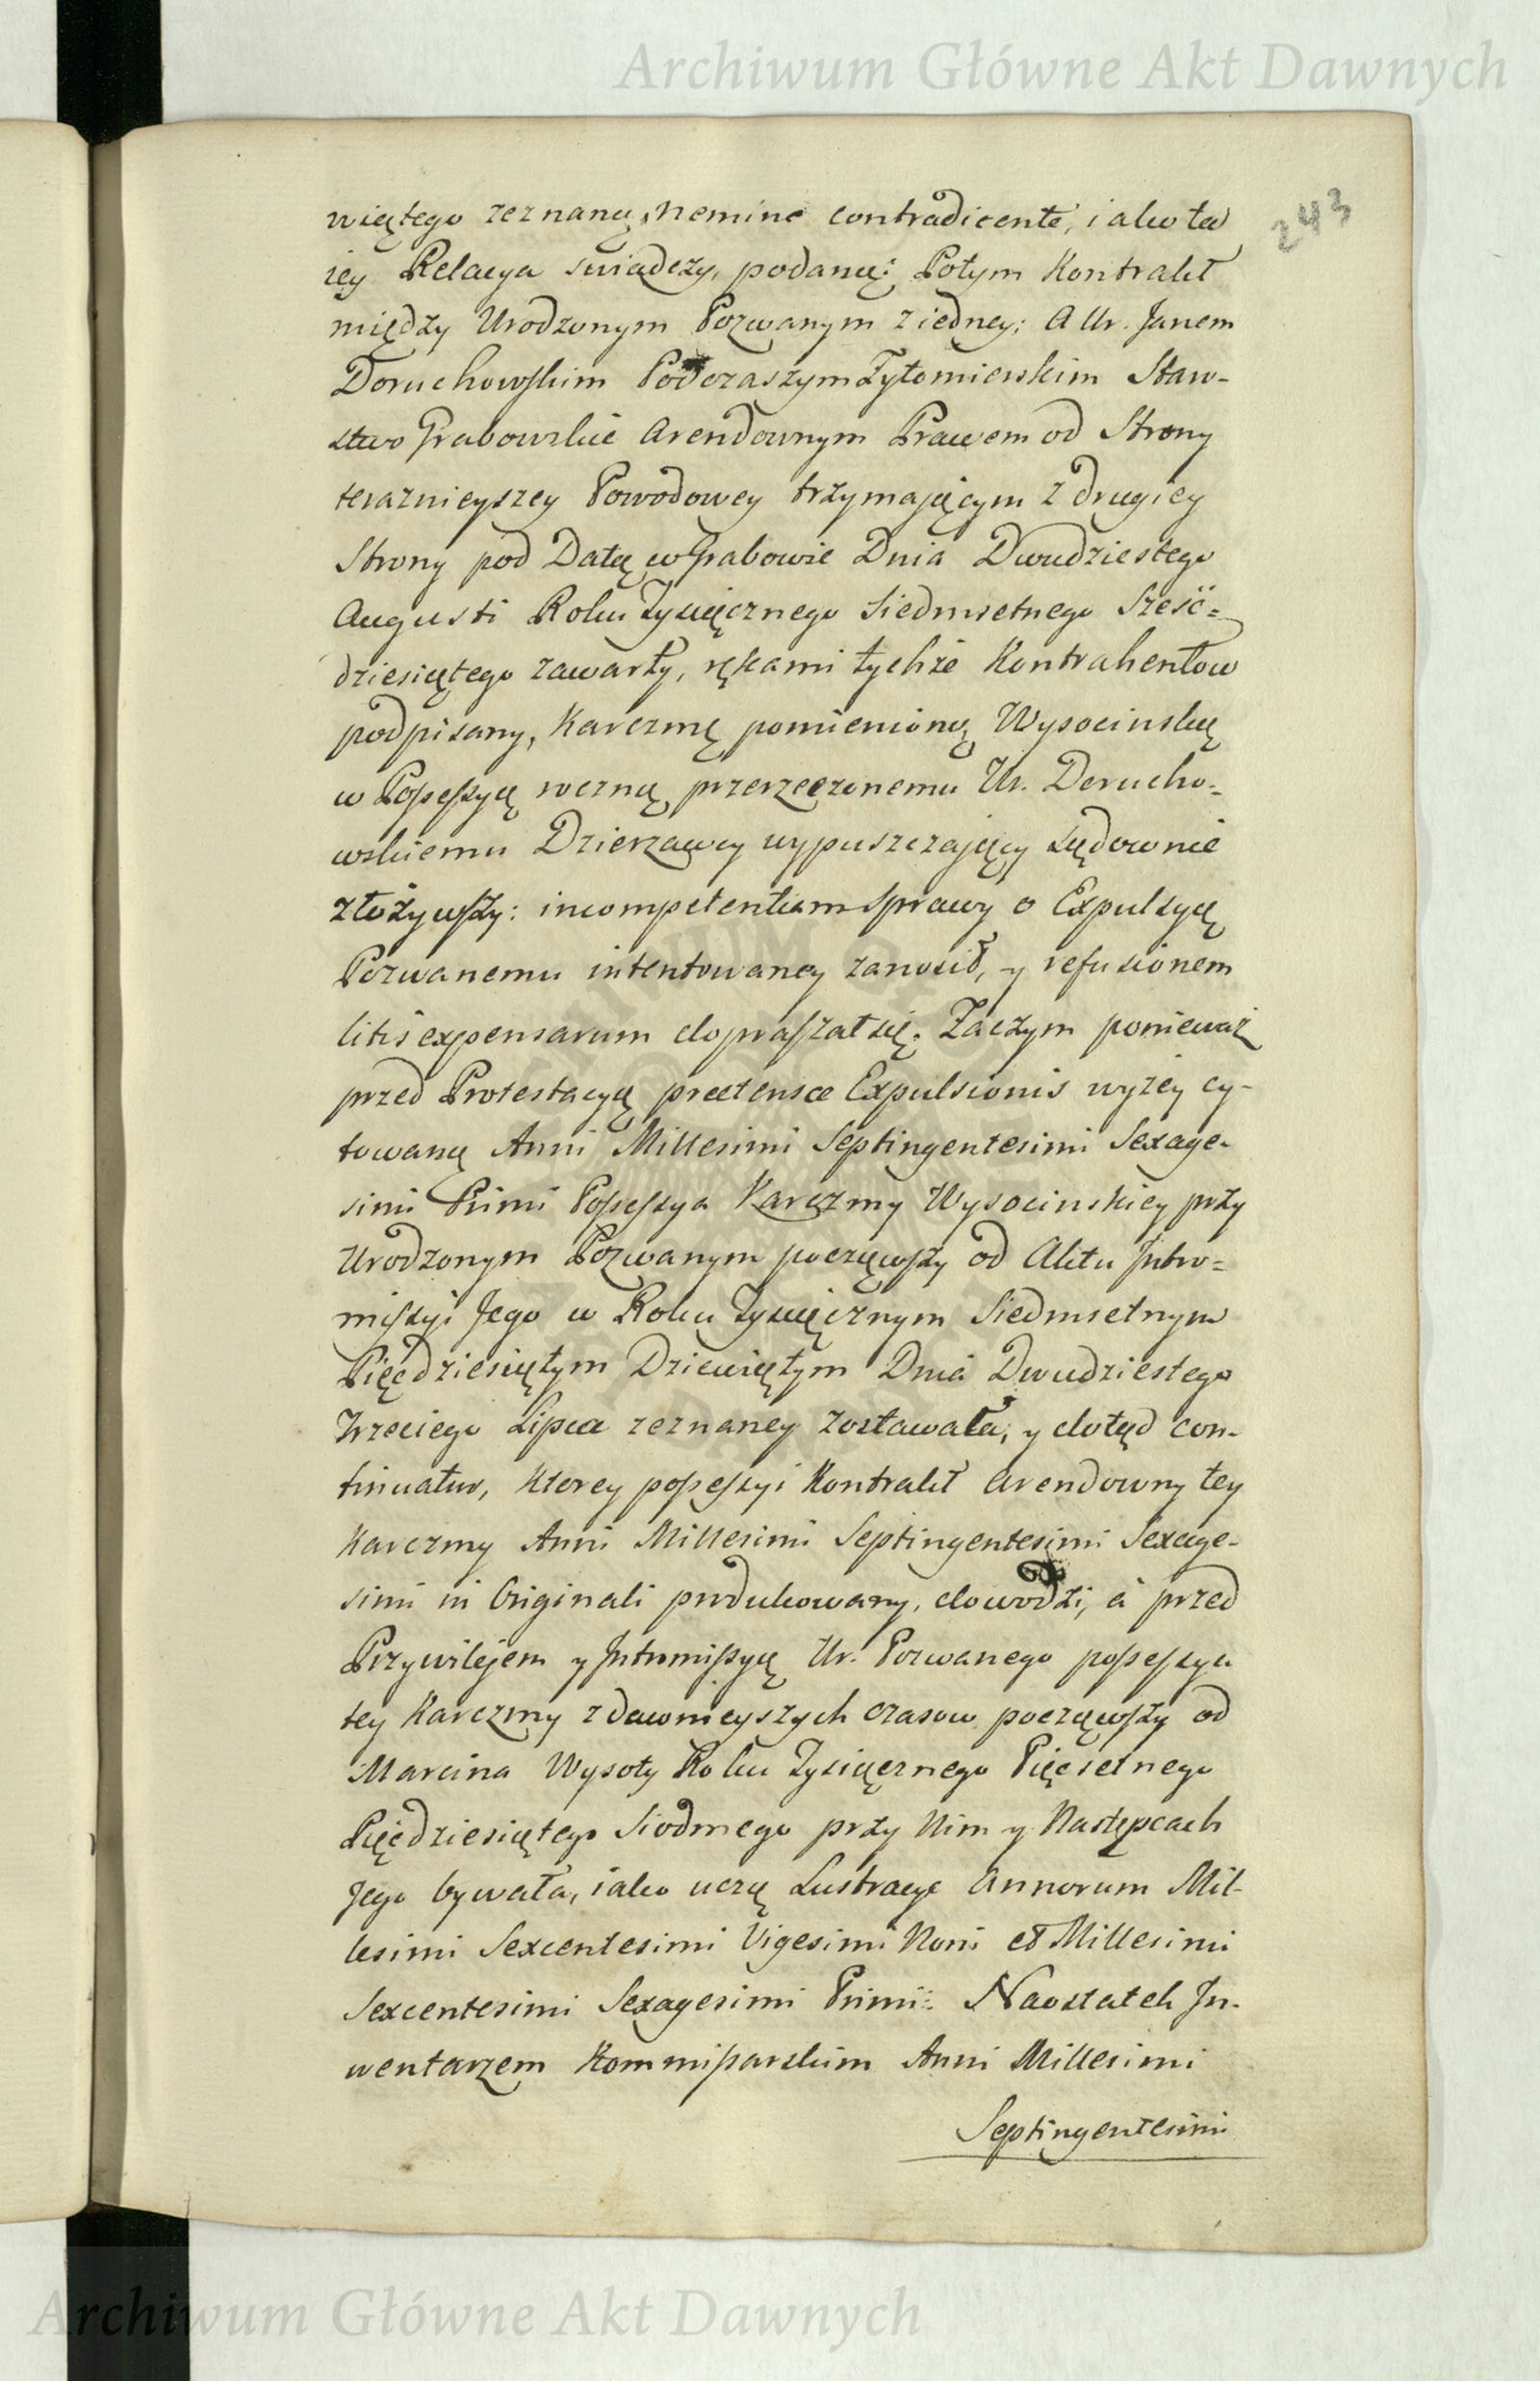 Archiwum Główne Akt Dawnych
243
więtego zeznaną, nemine contradicente, iako ta
iey Relacya swiadczy, podaną: Potym Kontrakt
między Urodzonym Pozwanym z iedney; A Ur. Janem
Doruchowskim Podczaszym Zytomierskim Staro-
stwo Grabowskie Arendownym Prawem od Strony
teraznieyszey Powodowey trzymającym z drugiey
Strony pod Datą w Grabowie Dnia Dwudziestego
Augusti Roku Tysiącznego Siedmsetnego Sześć=
dziesiątego zawarty, rękami tychże Kontrahentow
podpisany, Karczmę pomienioną Wysocinską
w Possessyą roczną przerzeczonemu Ur. Dorucho-
wskiemu Dzierzawcy wypuszczający sądownie
złożywszy: incompetentiam sprawy o Expulsyą
Pozwanemu intentowaney zanosił, y refusionem
litis expensarum dopraszał się. Zaczym ponieważ
przed Protestacyą praetensae Expulsionis wyzey cy-
towaną Anni Millesimi Septingentesimi Sexage-
simi Primi Possessya Karczmy Wysocinskiey przy
Urodzonym Pozwanym począwszy od Aktu Intro=
missyi Jego w Roku Tysiącznym Siedmsetnym
Pięcdziesiątym Dziewiątym Dnia Dwudziestego
Trzeciego Lipca zeznaney zostawała, y dotąd con-
tinuatur, ktorey possessyi Kontrakt Arendowny tey
Karczmy Anni Millesimi Septingentesimi Sexage-
simi in Originali produkowany, dowodzi, á przed
Przywilejem y Intromissyą Ur. Pozwanego possessya
tey Karczmy z dawnieyszych czasow począwszy od
Marcina Wysoty Roku Tysiącznego Pięcsetnego
Pięcdziesiątego Siodmego przy Nim y Następcach
Jego bywała, iako uczą Lustracye Annorum Mil-
lesimi Sexcentesimi Vigesimi Noni et Millesimi
Sexcentesimi Sexagesimi Primi: Naostatek In-
wentarzem Kommissarskim Anni Millesimi
Septingentesimi
Archiwum Główne Akt Dawnych